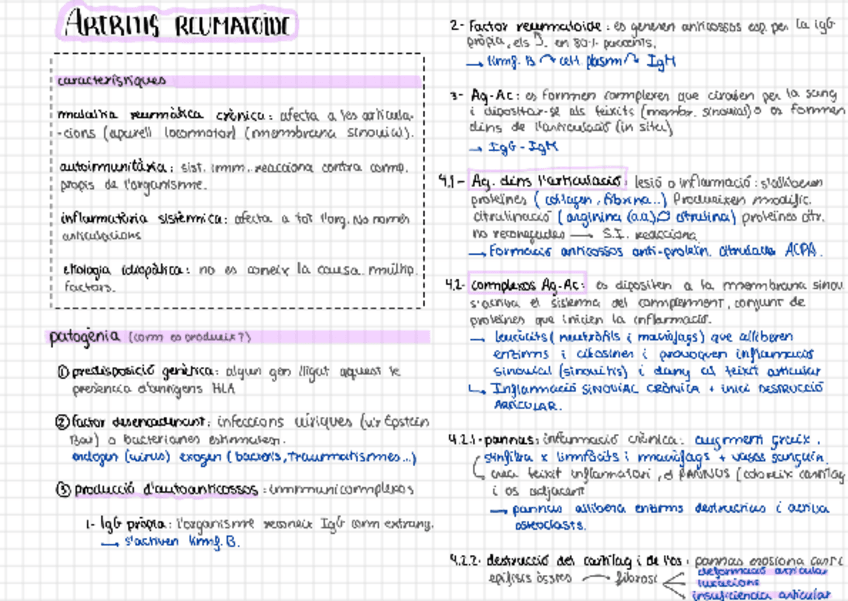 ARTRITIS REUMATOIDE
característiques
malaltia reumàtica crònica: afecta a les articula-
-cions (aparell locomotor) (membrana sinovial).
autoimmunitària: sist. imm. reacciona contra comp.
propis de l'organisme.
inflamatòria sistèmica: afecta a tot l'org. No només
articulacions
etiologia idiopàtica: no es coneix la causa. múltip.
factors.
patogènia (com es produeix?)
① predisposició genètica: algun gen lligat aquest te
presència d'antígens HLA
② factor desencadenant: infeccions víriques (vir Epstein
Bar) o bacterianes estimulen.
endogen (virus) exogen (bacteris, traumatismes...)
③ producció d'autoanticossos: immunicomplexos
1- IgG pròpia: l'organisme reconeix IgG com extrany.
→ s'activen limf. B.
2- Factor reumatoide: es generen anticossos esp. per la IgG
pròpia, els en 80% pacients.
→ limf. B → cèl. plasm → IgM
3- Ag-Ac: es formen complexes que circulen per la sang
i dipositar-se als teixits (membr. sinovial) o es formen
dins de l'articulació (in situ)
→ IgG - IgM
4.1- Ag. dins l'articulació: lesió o inflamació: s'alliberen
proteïnes (colàgen, fibrina...) Produeixen modific.
citrulinació (arginina (a.a) citrulina) proteïnes citr.
no reconegudes → S.I. reacciona
→ Formació anticossos anti-proteïn. citrulada ACPA.
4.2- complexos Ag-Ac: es dipositen a la membrana sinov
s'activa el sistema del complement, conjunt de
proteïnes que inicien la inflamació.
→ leucòcits (neutròfils i macròfags) que alliberen
enzims i citosines i provoquen inflamació
sinovial (sinovitis) i dany al teixit articular
↳ Inflamació SINOVIAL CRÒNICA + inici DESTRUCCIÓ
ARTICULAR.
4.2.1- pannus: inflamació crònica: augment gruix.
s'infiltra x limfòcits i macròfags + vasos sanguin.
crea teixit inflamatori, el PANNUS (cobreix cartílag
i os adjacent
→ pannus allibera enzims destructius i activa
osteoclasts.
4.2.2- destrucció del cartílag i de l'os: pannus erosiona cartí
epífisis òssies → fibrosi
deformació articular
luxacions
insuficiència articular